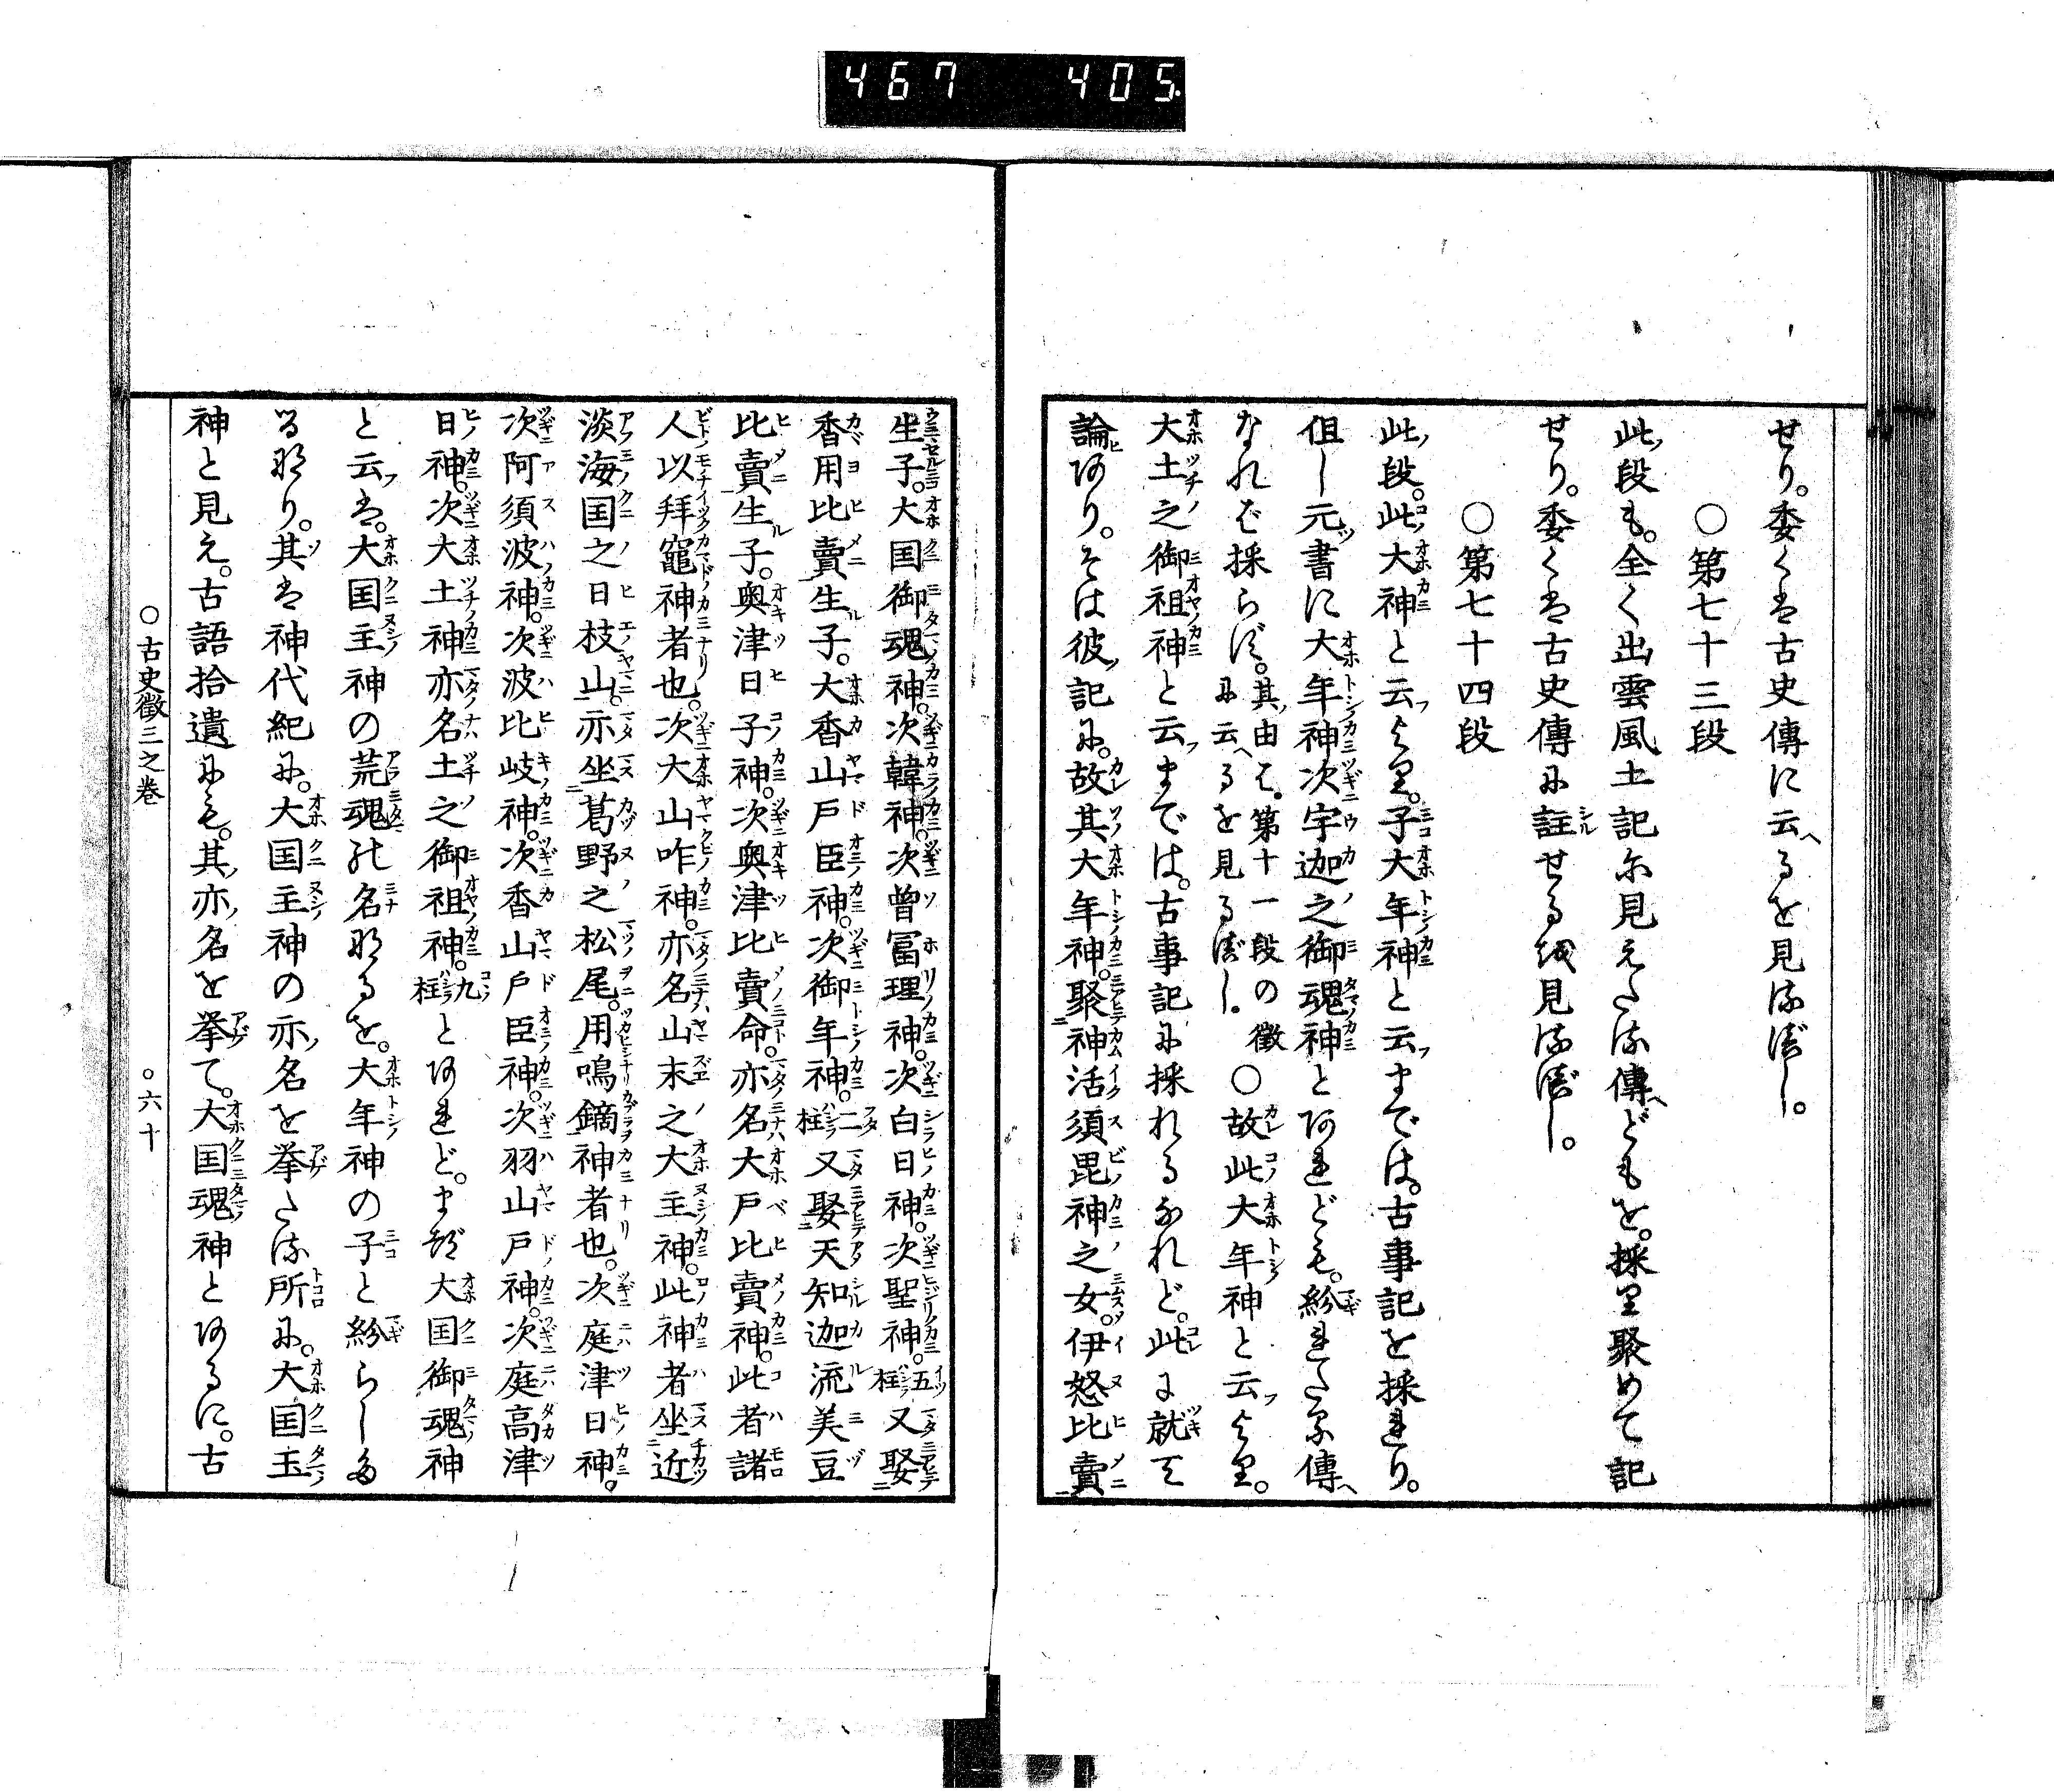 467 405
せり。委くは古史傳に云へるを見るべし。
○第七十三段
此ノ段も。全く出雲風土記に見えたる傳へどもを。採り聚めて記
せり。委くは古史傳に註せるを見るべし。
○第七十四段
此ノ段。此大神と云フより。子大年神と云フまでは。古事記を採れり。
但し元ツ書に大年神次宇迦之御魂神とあれども。紛れたる傳へ
なれば採らず。其ノ由は。第十一段の徴に云へるを見るべし。○故此大年神と云フより。
大土之御祖神と云フまでは。古事記に採れるなれど。此に就て
論ひあり。そは彼ノ記に。故其大年神。聚神活須毘神之女。伊怒比賣
生子。大国御魂神。次韓神。次曾冨理神。次白日神。次聖神。五柱又娶
香用比賣生子。大香山戸臣神。次御年神。二柱又娶天知迦流美豆
比賣生子。奥津日子神。次奥津比賣命。亦名大戸比賣神。此者諸
人以拜竈神者也。次大山咋神。亦名山末之大主神。此神者坐近
淡海国之日枝山。亦坐葛野之松尾。用鳴鏑神者也。次庭津日神。
次阿須波神。次波比岐神。次香山戸臣神。次羽山戸神。次庭高津
日神。次大土神亦名土之御祖神。九柱とあれど。まづ大国御魂神
と云は。大国主神の荒魂の名なるを。大年神の子と紛らした
るなり。其は神代紀に。大国主神の亦ノ名を挙たる所に。大国玉
神と見え。古語拾遺にも。其ノ亦ノ名を挙て。大国魂神とあるに。古
○古史徴三之巻 ○六十